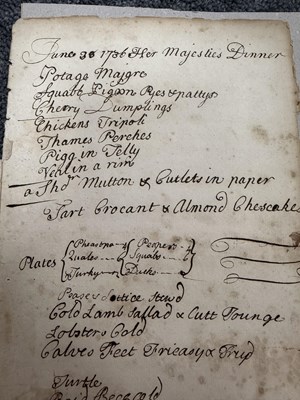 June 30 1736 Her Majesties Dinner
Potage Majgre
Squabt Pigeon Pyes & pattys
Cherry Dumplings
Chickens Tripoli
Thames Perches
Pigg in Jelly
Veal in a rim
a Shdr Mutton & Cutlets in paper
Tart Crocant & Almond Chescakes
Plates
Pheastnts Pepper
Quales Squabs
Turkys Ducks
Pease Lettice Stewd
Cold Lamb Sallad & Cutt Tounge
Lobsters Cold
Calves Feet Fricasy & Trup
Turtle